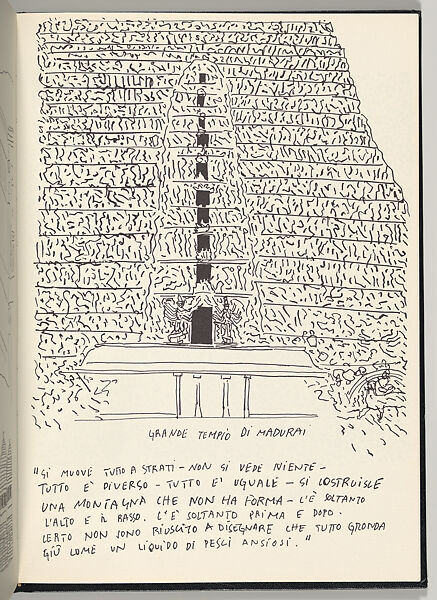 GRANDE TEMPIO DI MADURAI
"SI MUOVE TUTTO A STRATI – NON SI VEDE NIENTE –
TUTTO E' DIVERSO – TUTTO E' UGUALE – SI COSTRUISCE
UNA MONTAGNA CHE NON HA FORMA – C'È SOLTANTO
L'ALTO E IL BASSO. C'È SOLTANTO PRIMA E DOPO.
CERTO NON SONO RIUSCITO A DISEGNARE CHE TUTTO GRONDA
GIÙ COME UN LIQUIDO DI PESCI ANSIOSI."